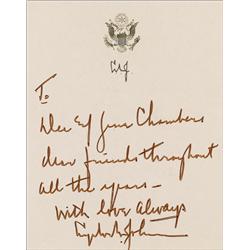 LBJ
To
Jane Chambers
dear friends throughout
all the years -
with love always
Lyndon B. Johnson